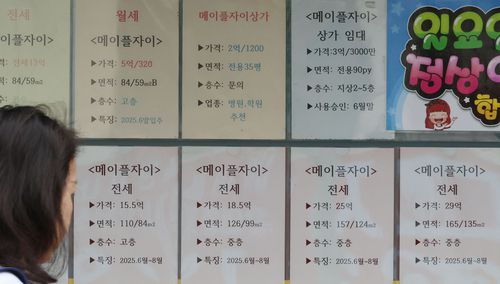 전세
<메이플자이>
▶가격: 전세13억
▶면적: 84/59m2
▶층수: 고층
월세
<메이플자이>
▶가격: 5억/320
▶면적: 84/59m2B
▶층수: 고층
▶특징: 2025.6말입주
메이플자이상가
▶가격: 2억/1200
▶면적: 전용35평
▶층수: 문의
▶업종: 병원.학원
추천
<메이플자이>
상가 임대
▶가격:3억/3000만
▶면적: 전용90py
▶층수: 지상2~5층
▶사용승인: 6월말
일요일
정상
<메이플자이>
전세
▶가격: 15.5억
▶면적: 110/84m2
▶층수: 고층
▶특징: 2025.6월~8월
<메이플자이>
전세
▶가격: 18.5억
▶면적: 126/99m2
▶층수: 중층
▶특징: 2025.6월~8월
<메이플자이>
전세
▶가격: 25억
▶면적: 157/124m2
▶층수: 중층
▶특징: 2025.6월~8월
<메이플자이>
전세
▶가격: 29억
▶면적: 165/135m2
▶층수: 중층
▶특징: 2025.6월~8월